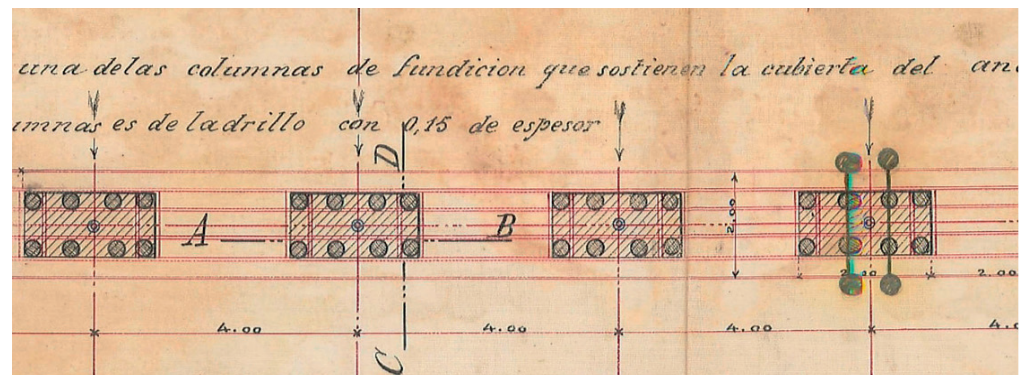 una de las columnas de fundicion que sostienen la cubierta del an
umnas es de ladrillo con 0,15 de espesor
D
A B
2.00
2.00 2.00
4.00 4.00 4.00 4.
C